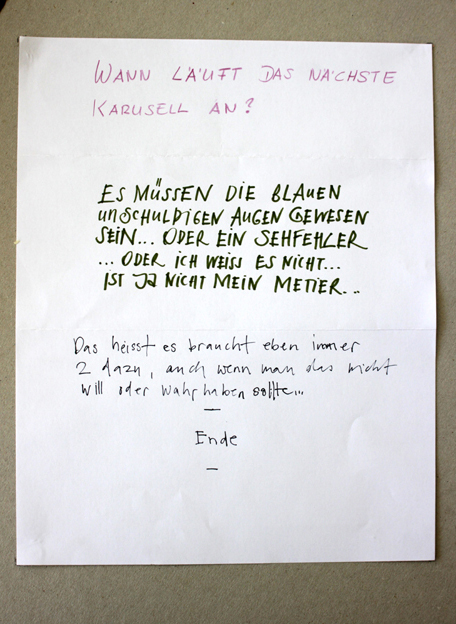 WANN LÄUFT DAS NÄCHSTE
KARUSELL AN?
ES MÜSSEN DIE BLAUEN
UNSCHULDIGEN AUGEN GEWESEN
SEIN... ODER EIN SEHFEHLER
... ODER ICH WEISS ES NICHT...
IST JA NICHT MEIN METIER...
Das heisst es braucht eben immer
2 dazu, auch wenn man das nicht
will oder wahrhaben sollte...
—
Ende
—